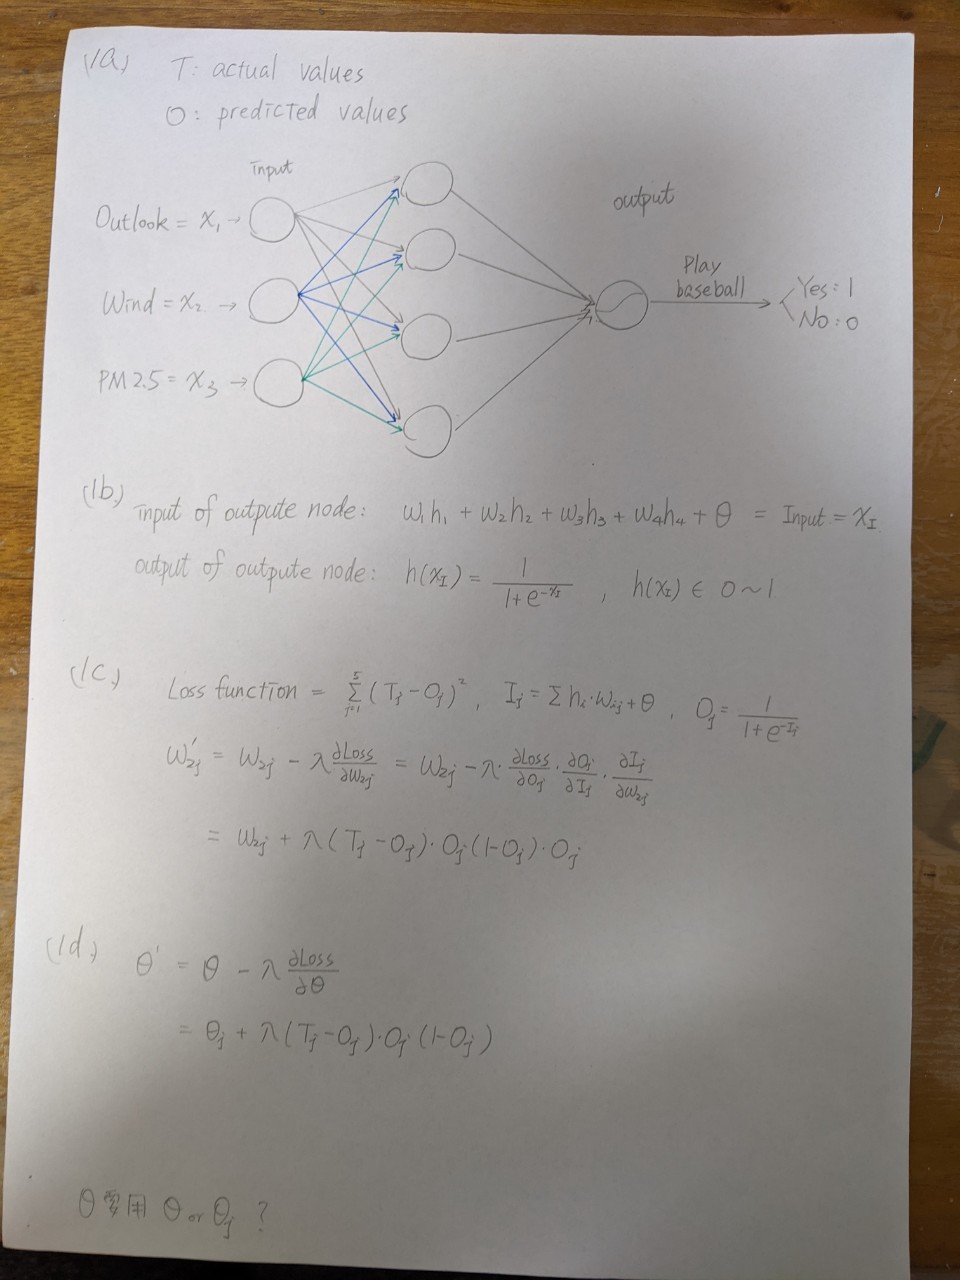 (1a.) T: actual values
O: predicted values
input
output
Outlook = x₁ →
Wind = x₂ →
PM 2.5 = x₃ →
Play
baseball
Yes: 1
No: 0
(1b.) input of outpute node: w₁h₁ + w₂h₂ + w₃h₃ + w₄h₄ + θ = Input = x_I
output of outpute node: h(x_I) = 1/(1+e^(-x_I)) , h(x_I) ∈ 0~1
(1c.) Loss function = Σ_(j=1)^5 (T_j - O_j)², I_j = Σ h_i·w_ij + θ , O_j = 1/(1+e^(-I_j))
w₂j' = w₂j - λ ∂Loss/∂w₂j = w₂j - λ· ∂Loss/∂O_j · ∂O_j/∂I_j · ∂I_j/∂w₂j
= w₂j + λ(T_j - O_j)·O_j(1-O_j)·O_j
(1d.) θ' = θ - λ ∂Loss/∂θ
= θ_j + λ(T_j - O_j)·O_j(1-O_j)
θ 要用 θ or θ_j ?